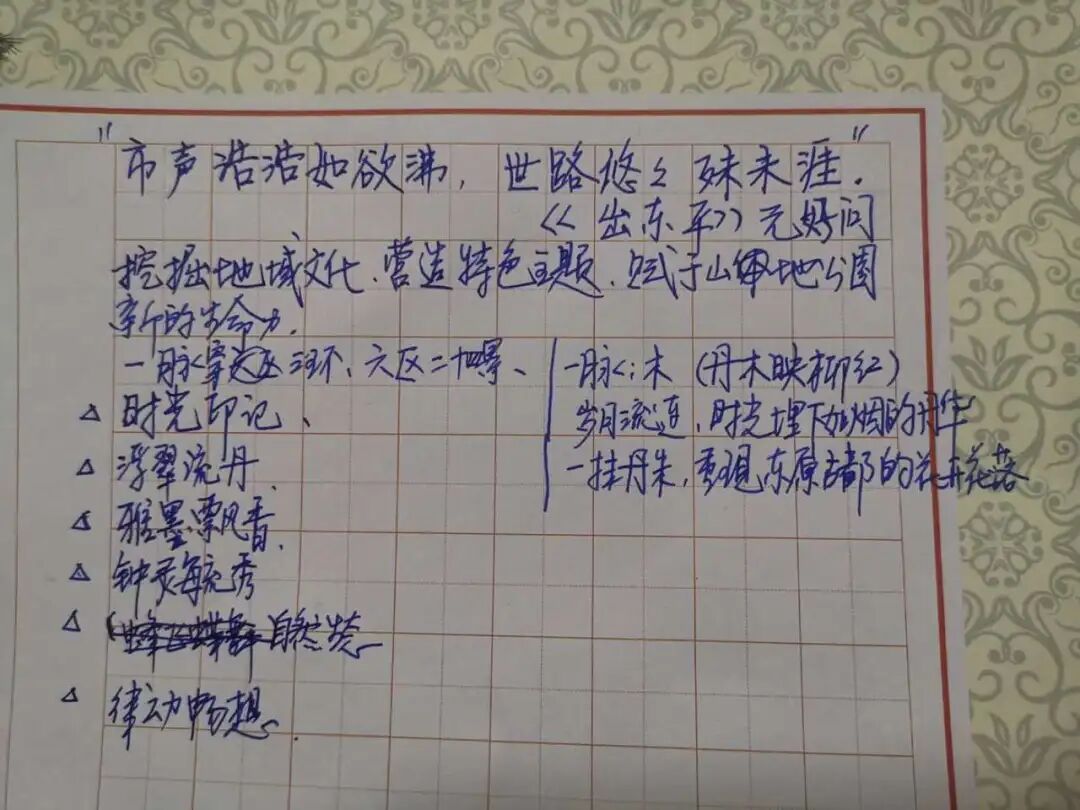 "市声浩浩如欲沸，世路悠々殊未涯．"
《出东平》元好问
挖掘地域文化、营造特色主题、赋于山体地公园
新的生命力．
一脉 环、六区二十景、
△ 时光印记、
△ 浮翠流丹、
△ 雅墨飘香、
△ 钟灵毓秀
△ 自然
△ 律动畅想、
一脉：木（丹木映柳红）
岁月流连，时光埋下如烟的丹华
一挂丹朱，重现东原古都的花开花落